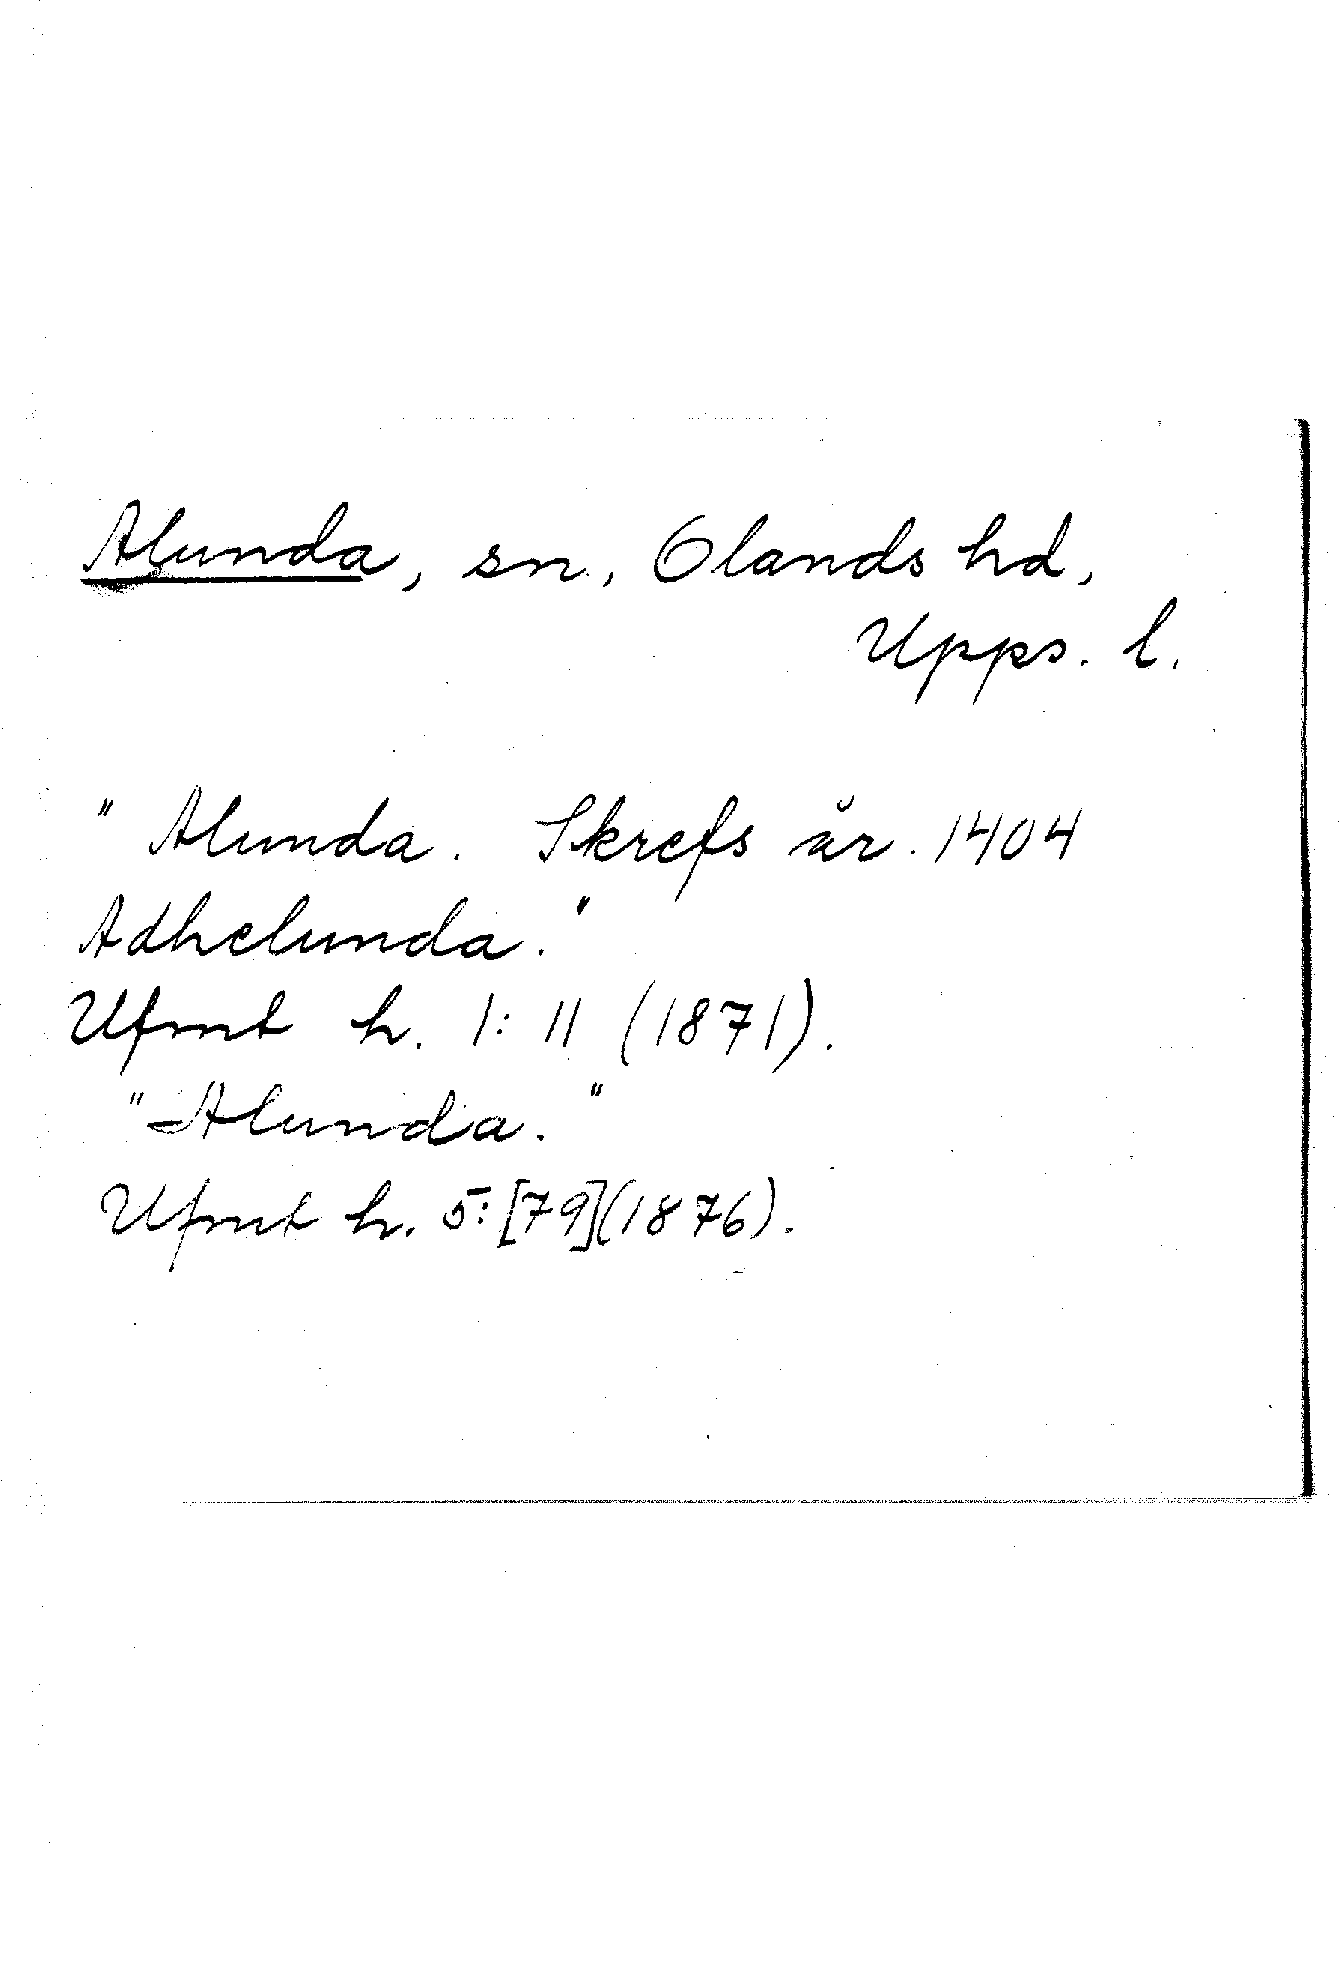 Alunda, sn, Olands hd,
Upps. l.
"Alunda. Skrefs år. 1404
Adhelunda."
Ufmt h. 1: 11 (1871).
"Alunda."
Ufmt h. 5: [79](1876).